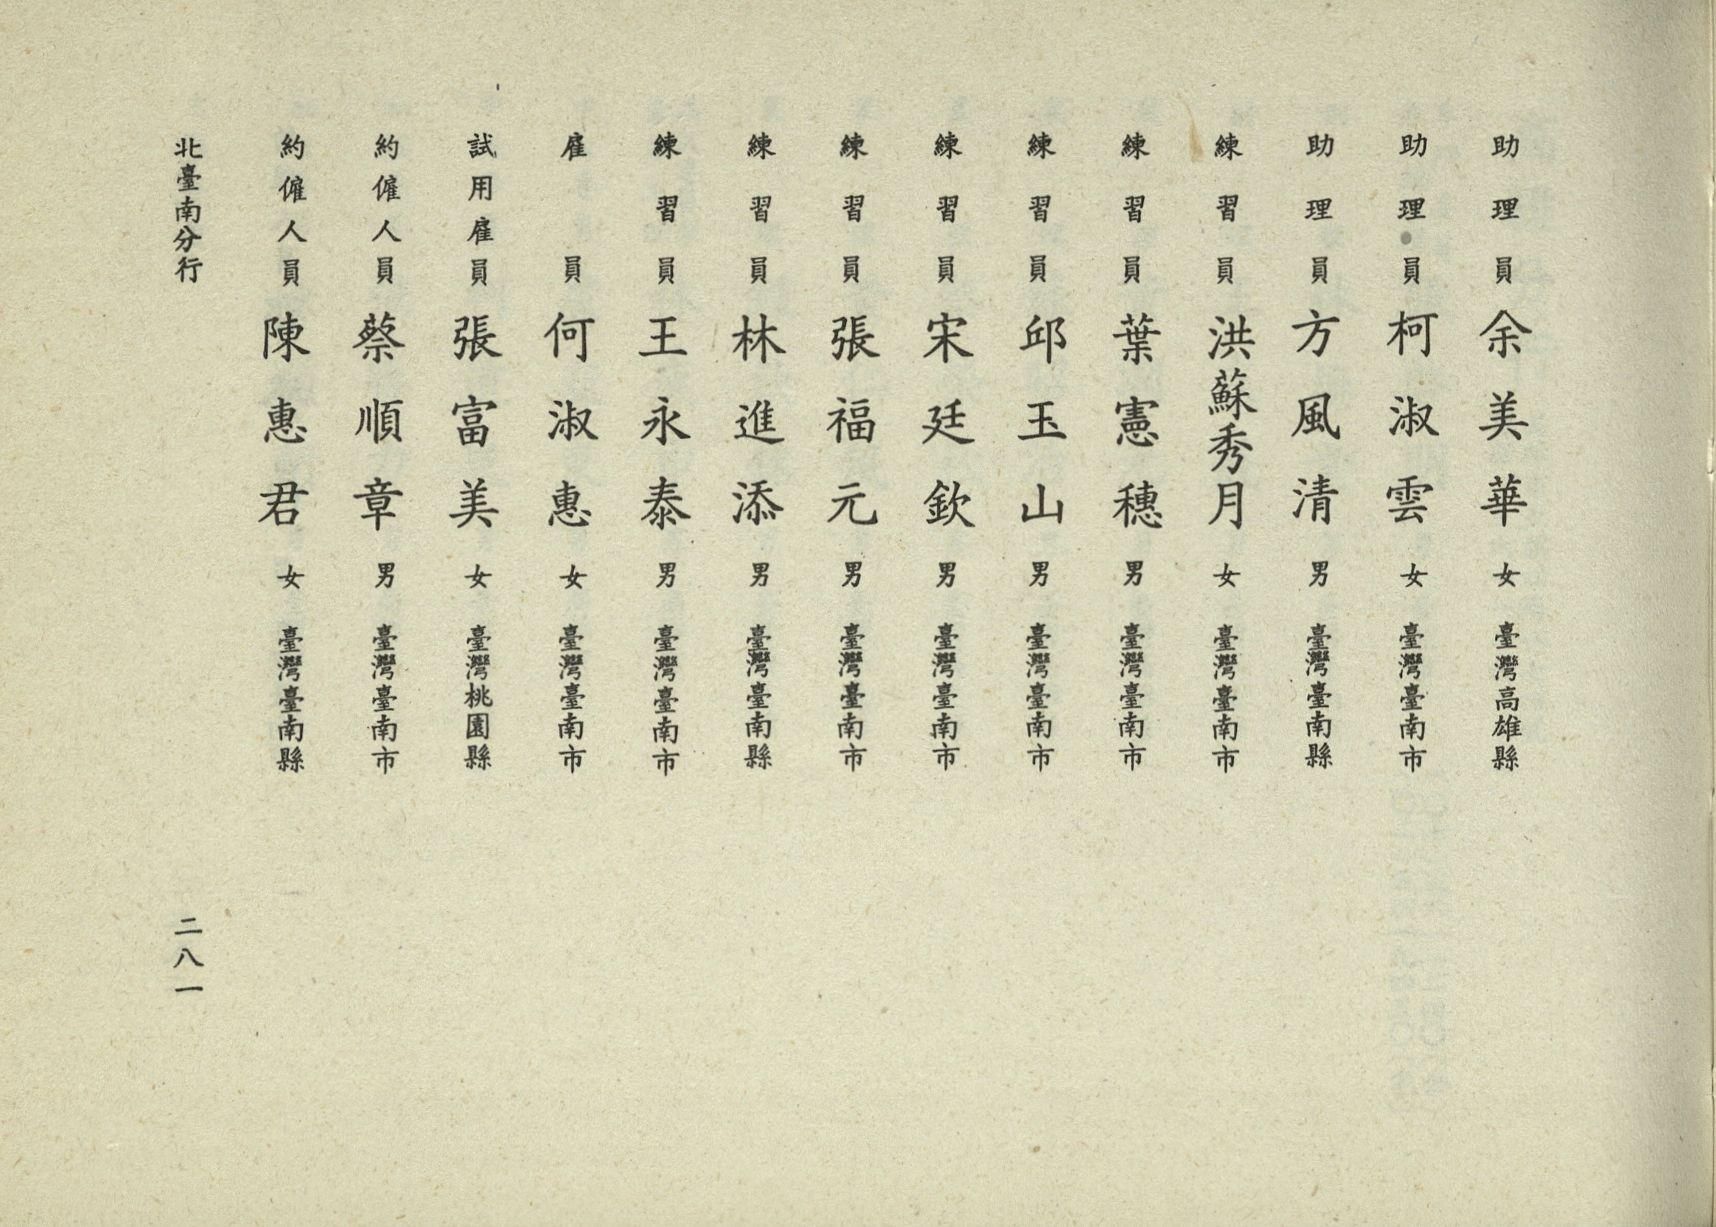 助理員 余美華 女 臺灣高雄縣
助理員 柯淑雲 女 臺灣臺南市
助理員 方風清 男 臺灣臺南縣
練習員 洪蘇秀月 女 臺灣臺南市
練習員 葉憲穗 男 臺灣臺南市
練習員 邱玉山 男 臺灣臺南市
練習員 宋廷欽 男 臺灣臺南市
練習員 張福元 男 臺灣臺南市
練習員 林進添 男 臺灣臺南縣
練習員 王永泰 男 臺灣臺南市
雇員 何淑惠 女 臺灣臺南市
試用雇員 張富美 女 臺灣桃園縣
約僱人員 蔡順章 男 臺灣臺南市
約僱人員 陳惠君 女 臺灣臺南縣
北臺南分行 二八一